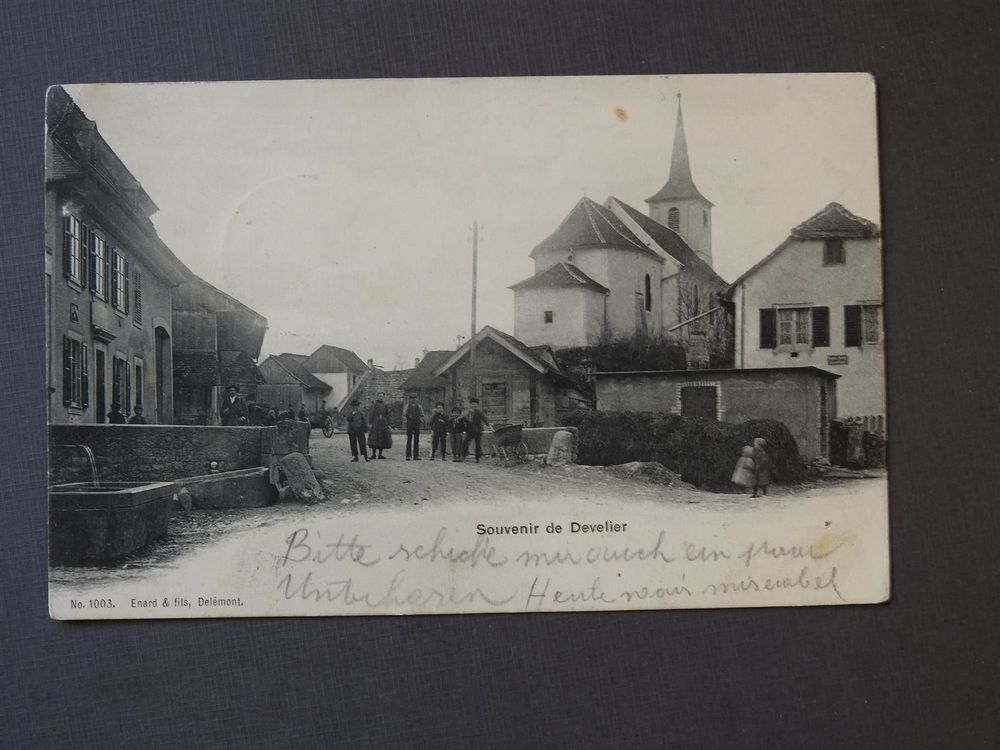 Souvenir de Develier
Bitte schicke mir auch ein paar
Unterhosen Heute miserabel
No. 1003. Enard & fils, Delémont.